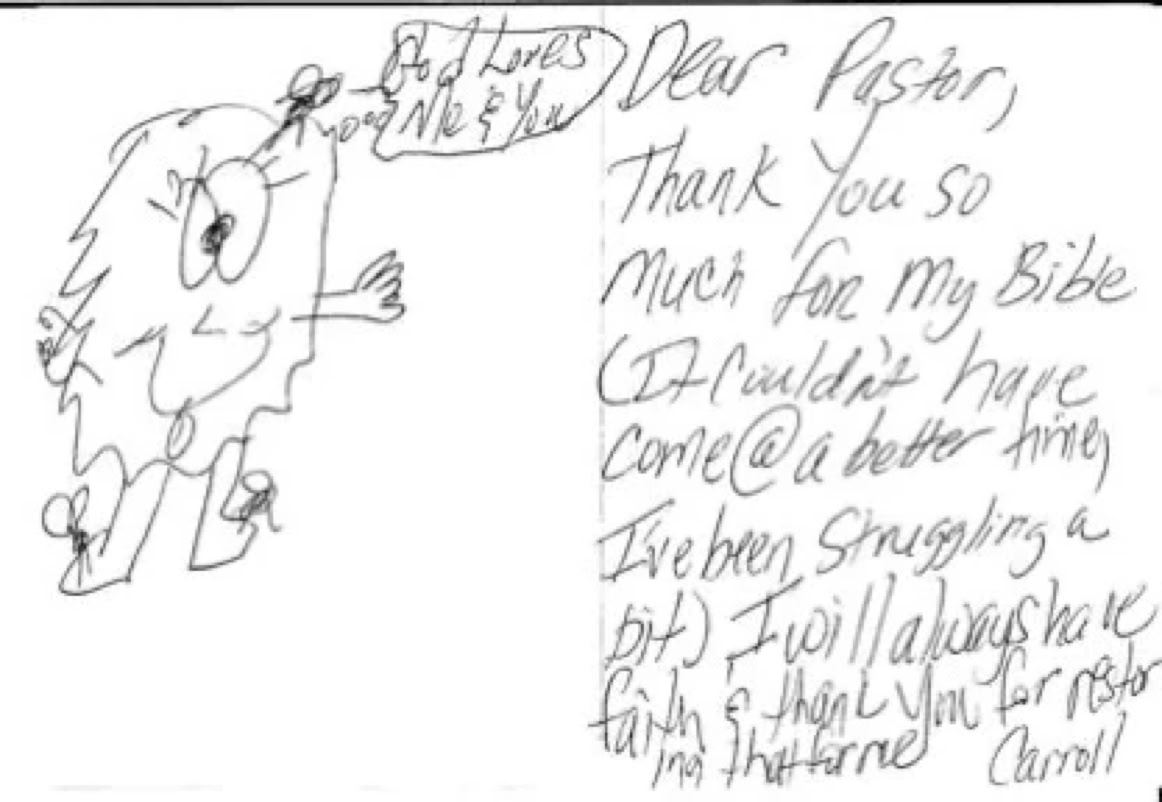 God Loves
Me & You
Dear Pastor,
Thank You so
Much for My Bible
(It Couldn't have
come @ a better time,
I've been Struggling a
bit) I will always have
faith & thank you for restor
ing that for me
Carroll